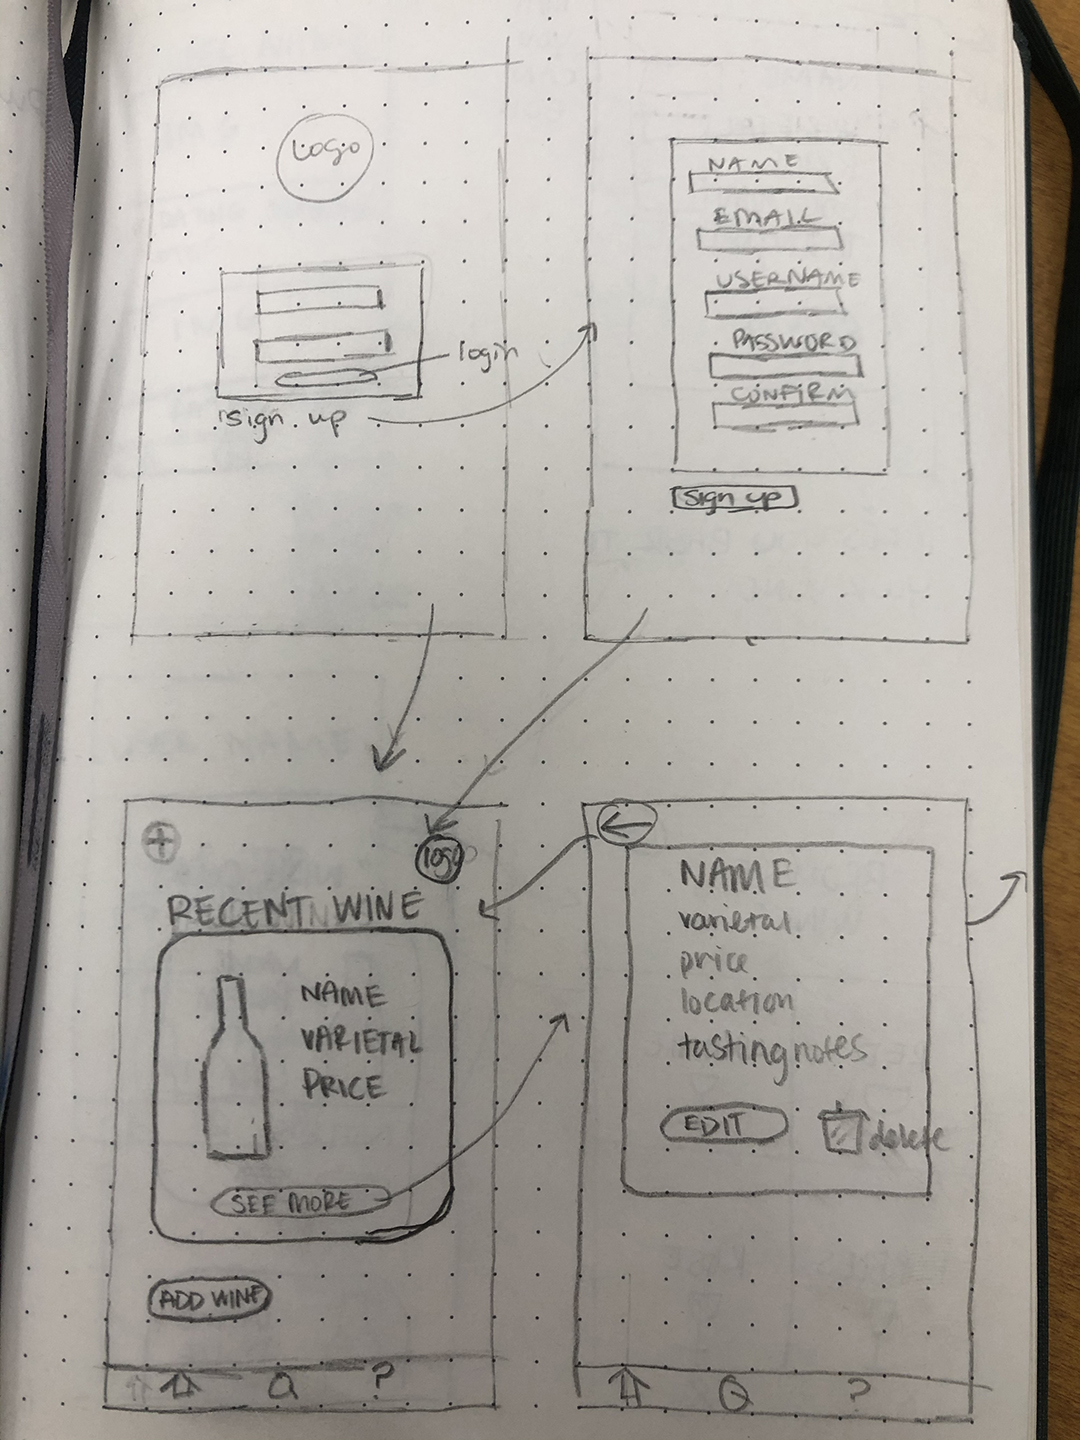 Logo
login
sign up
NAME
EMAIL
USERNAME
PASSWORD
CONFIRM
sign up
logo
RECENT WINE
NAME
VARIETAL
PRICE
SEE MORE
ADD WINE
?
NAME
varietal
price
location
tasting notes
EDIT
delete
?